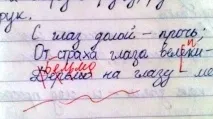 рук.
С глаз долой - прочь;
От страха глаза велики-
Бельмо на глазу